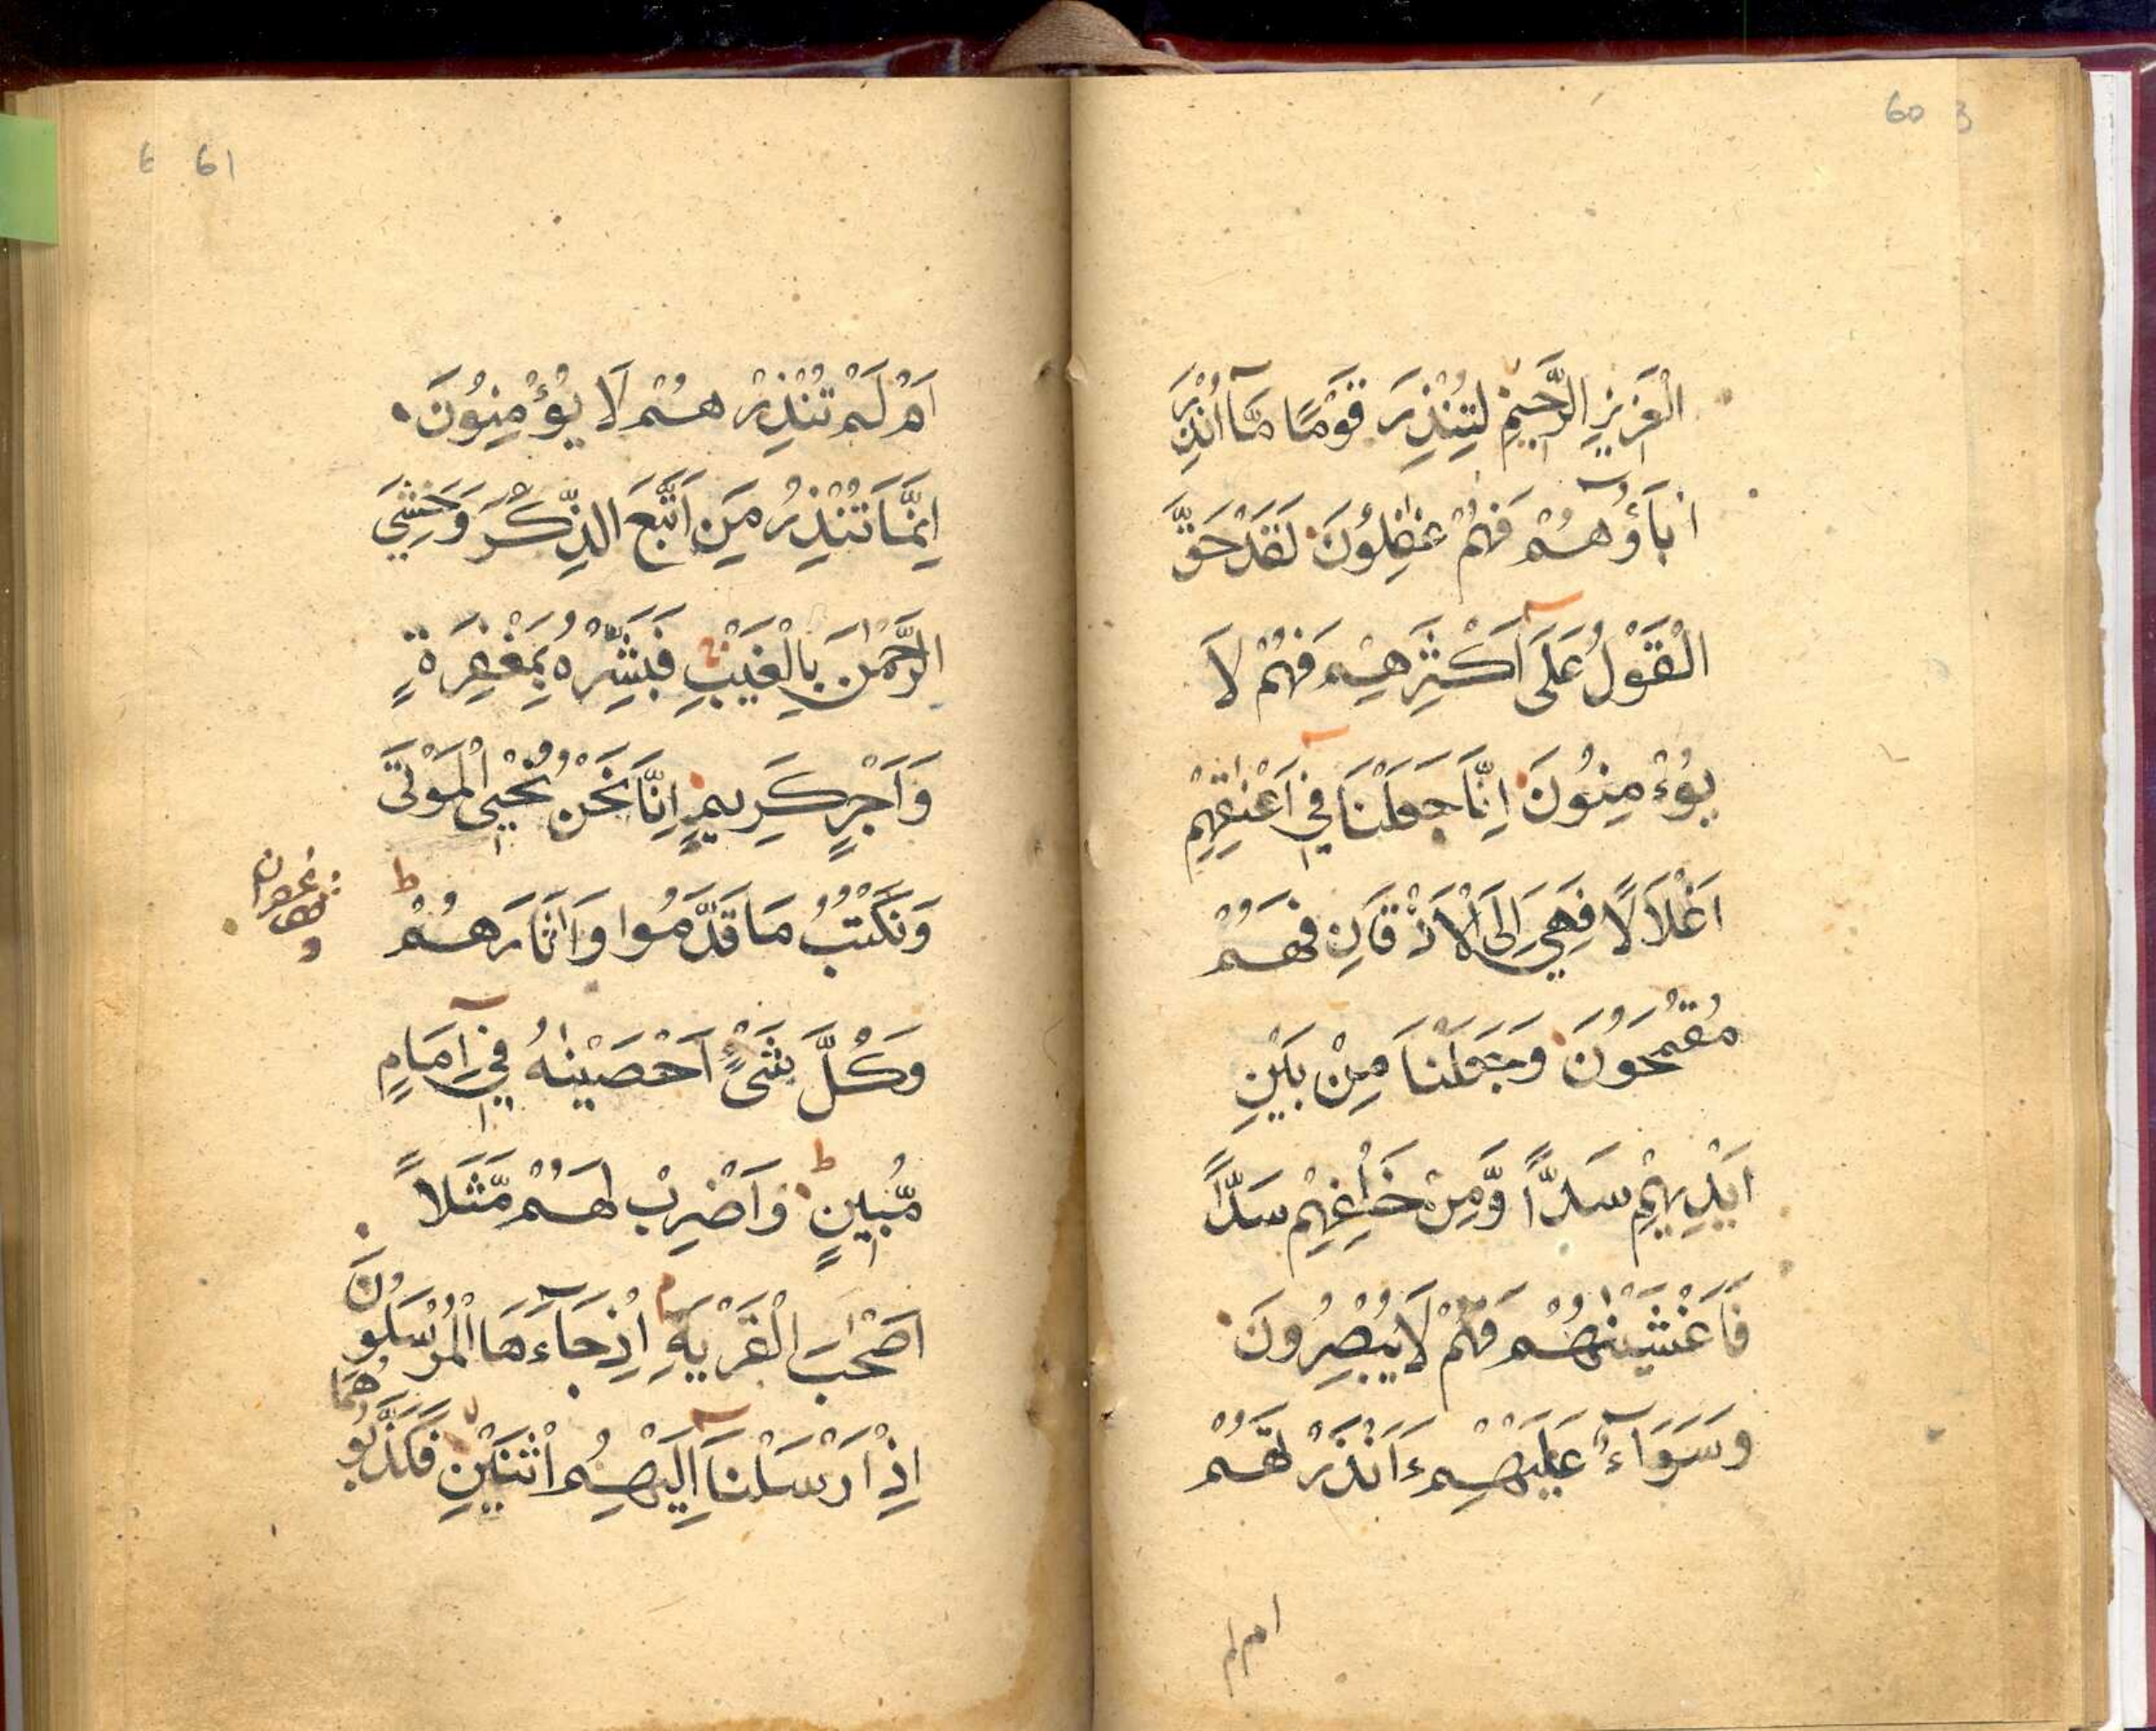 60 3
الْعَزِيزِ الرَّحِيمِ لِتُنْذِرَ قَوْمًا مَّآ اُنْذِرَ
اٰبَآؤُهُمْ فَهُمْ غٰفِلُوْنَ لَقَدْ حَقَّ
الْقَوْلُ عَلَىٓ اَكْثَرِهِمْ فَهُمْ لَا
يُؤْمِنُوْنَ اِنَّا جَعَلْنَا فِيٓ اَعْنٰقِهِمْ
اَغْلَالًا فَهِيَ اِلَى الْاَذْقَانِ فَهُمْ
مُقْمَحُوْنَ وَجَعَلْنَا مِنْ بَيْنِ
اَيْدِيْهِمْ سَدًّا وَّمِنْ خَلْفِهِمْ سَدًّا
فَاَغْشَيْنٰهُمْ فَهُمْ لَا يُبْصِرُوْنَ
وَسَوَآءٌ عَلَيْهِمْ ءَاَنْذَرْتَهُمْ
ام لم
6 61
اَمْ لَمْ تُنْذِرْهُمْ لَا يُؤْمِنُوْنَ
اِنَّمَا تُنْذِرُ مَنِ اتَّبَعَ الذِّكْرَ وَخَشِيَ
الرَّحْمٰنَ بِالْغَيْبِ فَبَشِّرْهُ بِمَغْفِرَةٍ
وَاَجْرٍ كَرِيمٍ اِنَّا نَحْنُ نُحْيِ الْمَوْتَى
وَنَكْتُبُ مَا قَدَّمُوا وَاٰثَارَهُمْ ط
وَكُلَّ شَيْءٍ اَحْصَيْنٰهُ فِيٓ اِمَامٍ
مُّبِيْنٍ ط وَاضْرِبْ لَهُمْ مَّثَلًا
اَصْحٰبَ الْقَرْيَةِ م اِذْ جَآءَهَا الْمُرْسَلُوْنَ
اِذْ اَرْسَلْنَآ اِلَيْهِمُ اثْنَيْنِ فَكَذَّبُوْهُمَا